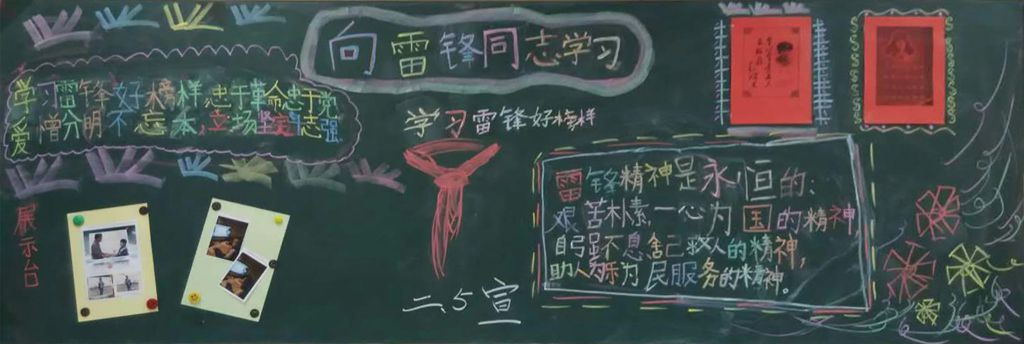 向雷锋同志学习
学习雷锋好榜样忠于革命忠于党
爱憎分明不忘本,立场坚定斗志强
学习雷锋好榜样
雷锋精神是永恒的:
艰苦朴素一心为国的精神
自强不息舍己救人的精神,
助人为乐为民服务的精神。
展示台
二、5宣